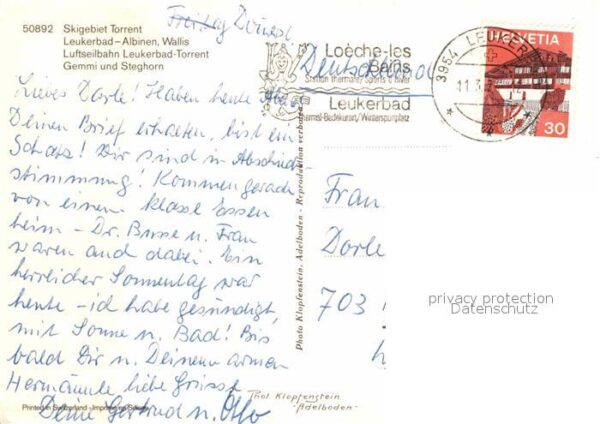 50892 Skigebiet Torrent
Leukerbad–Albinen, Wallis
Luftseilbahn Leukerbad-Torrent
Gemmi und Steghorn
Freitag Dienst
Liebes Dorle! Haben heute
Deinen Brief erhalten, bist ein
Schatz! Wir sind in Abschieds
stimmung! Kommen gerade
von einem klasse Essen
heim - Dr. Busse u. Frau
waren auch dabei. Ein
herrlicher Sonnentag war
heute - ich habe gesündigt
mit Sonne u. Bad! Bis
bald Dir u. Deinem armen
Hermännle liebe Grüsse
Deine Gertrud u. Otto
Printed in Switzerland - Imprimé en Suisse
Photo Klopfenstein, Adelboden - Reproduktion verboten
Phot Klopfenstein
"Adelboden"
Loèche-les
Bains
Station thermale/Sports d'hiver
Leukerbad
Thermal-Badekurort/Wintersportplatz
Deutschland
3954 LEUKERBAD
11.3
HELVETIA
30
Frau
Dorle
703
privacy protection
Datenschutz